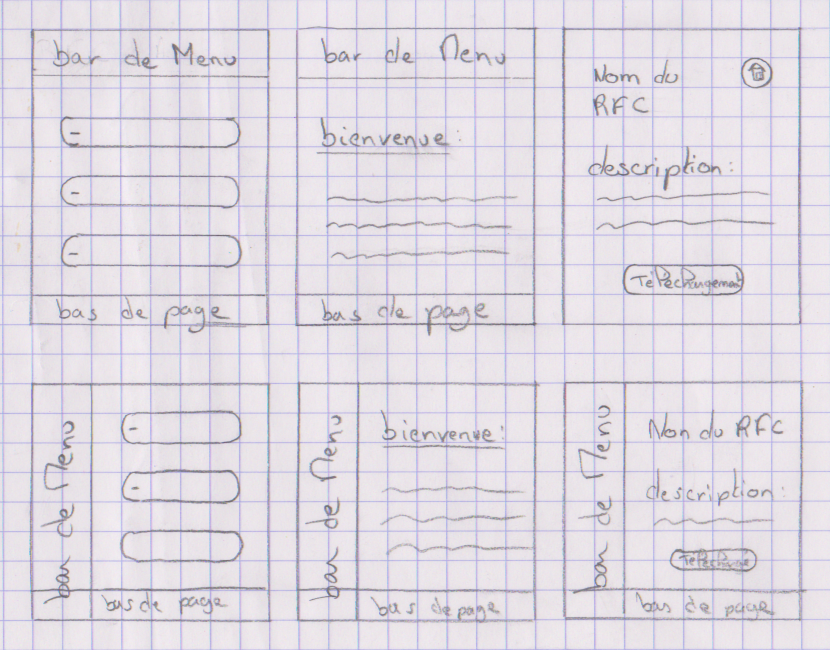 bar de Menu
bas de page
bar de Menu
bienvenue:
bas de page
Nom du
RFC
description:
Téléchargement
bar de Menu
bas de page
bar de Menu
bienvenue:
bas de page
bar de Menu
Nom du RFC
description:
Télécharge
bas de page